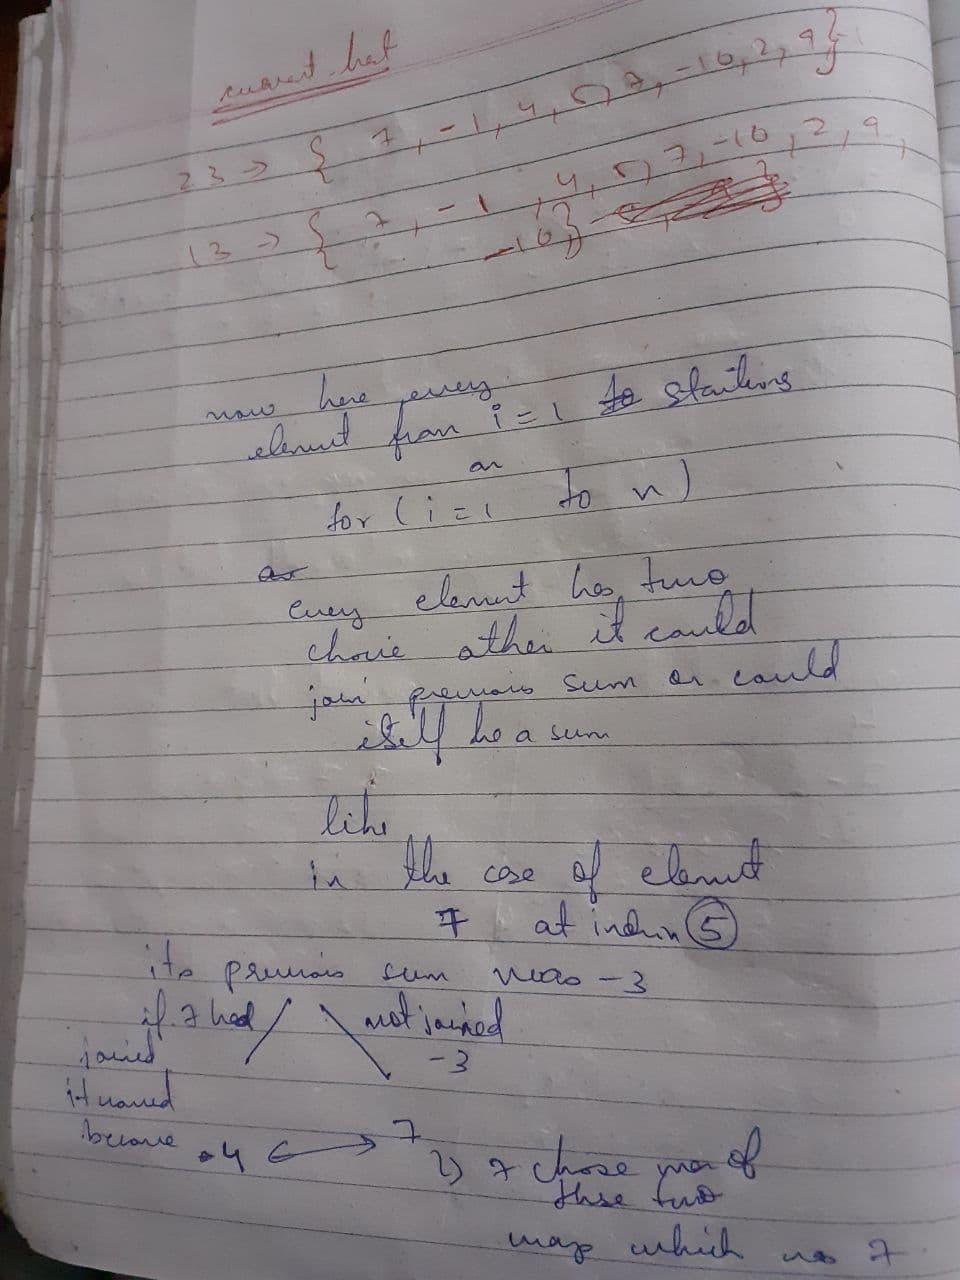 current best
23 → { 7, -1, 4, 5, 7, -10, 2, 9}
13 → { 7, -1, 4, 5, 7, -10, 2, 9,
-10}
now here every
element from i = 1 to starting
or
for (i = 1 to n)
every element has two
choice other it could
join previous sum or could
itself be a sum
like
in the case of element
7 at index 5
its previous sum was -3
if 7 had not joined
joined -3
it would
become 4 7
2) 7 chose max of
these two
which was 7